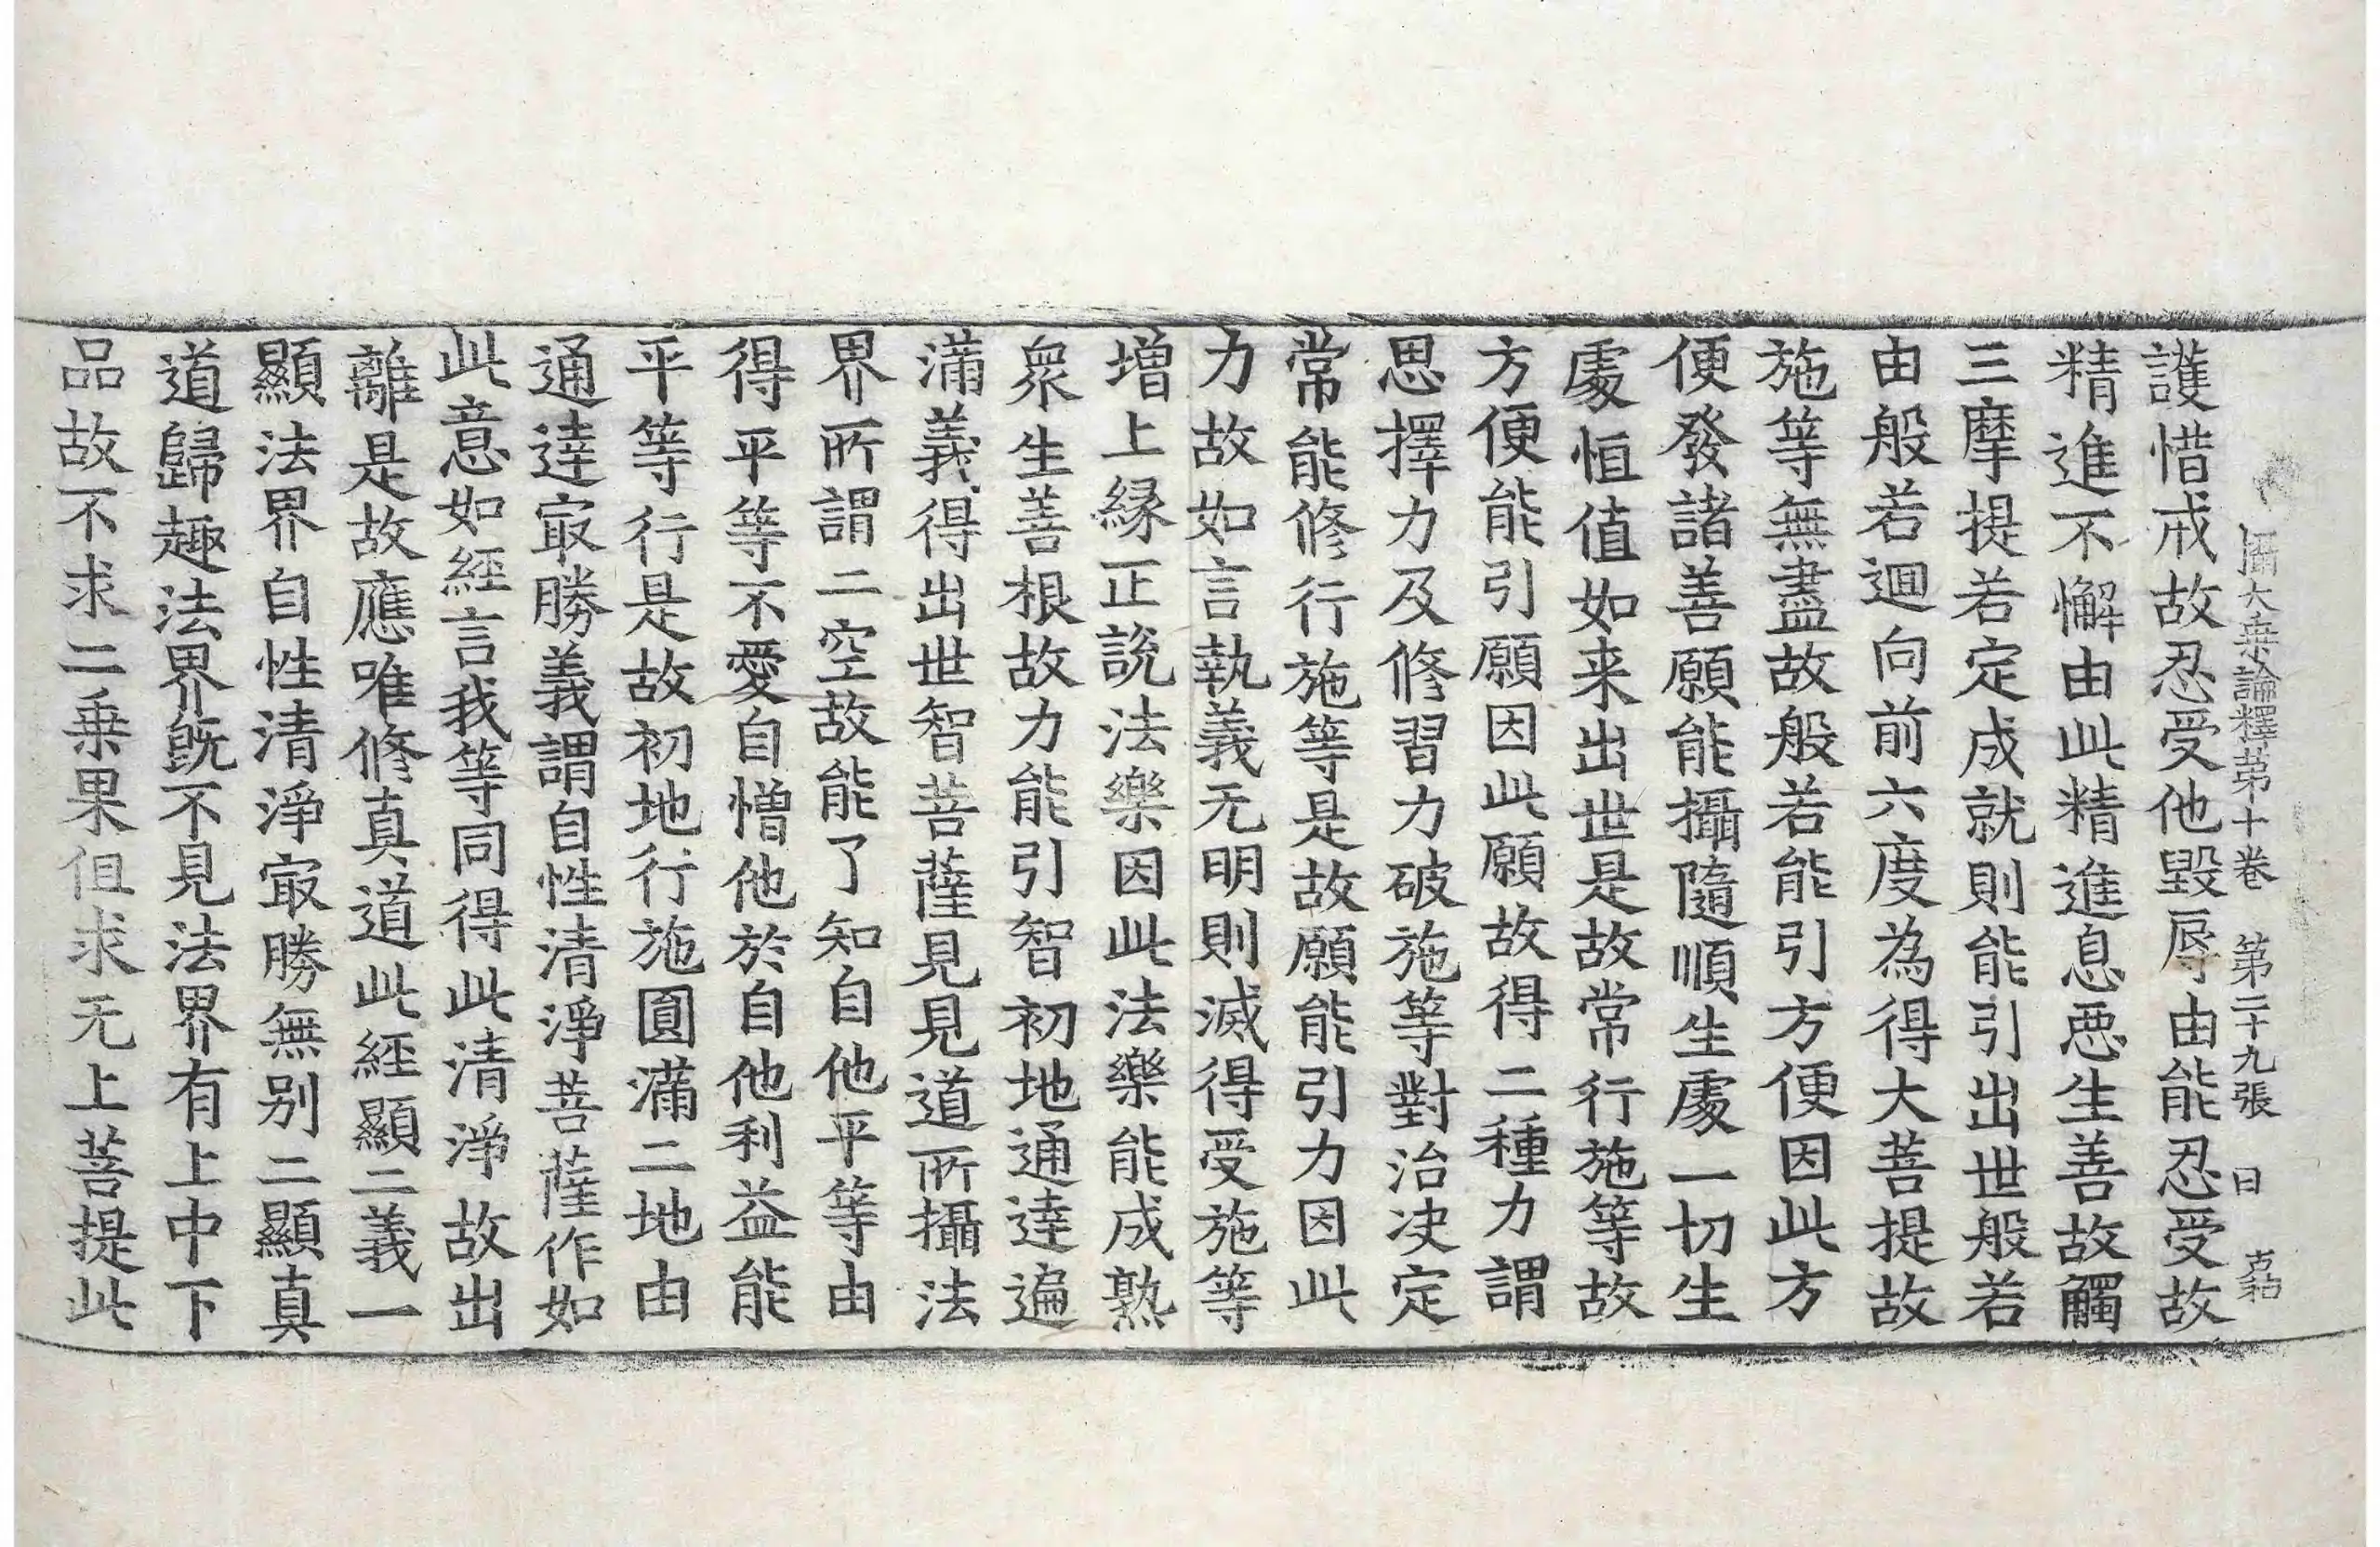 攝大乗論釋第十卷 第二十九張 日
護惜戒故忍受他毀辱由能忍受故
精進不懈由此精進息惡生善故觸
三摩提若定成就則能引出世般若
由般若迴向前六度為得大菩提故
施等無盡故般若能引方便因此方
便發諸善願能攝隨順生處一切生
處恒值如来出世是故常行施等故
方便能引願因此願故得二種力謂
思擇力及修習力破施等對治决定
常能修行施等是故願能引力因此
力故如言執義无明則滅得受施等
增上緣正說法樂因此法樂能成熟
衆生善根故力能引智初地通達遍
滿義得出世智菩薩見見道所攝法
界所謂二空故能了知自他平等由
得平等不愛自憎他於自他利益能
平等行是故初地行施圓滿二地由
通達寂勝義謂自性清淨菩薩作如
此意如經言我等同得此清淨故出
離是故應唯修真道此經顯二義一
顯法界自性清淨寂勝無别二顯真
道歸趣法界旣不見法界有上中下
品故不求二乗果但求无上菩提此